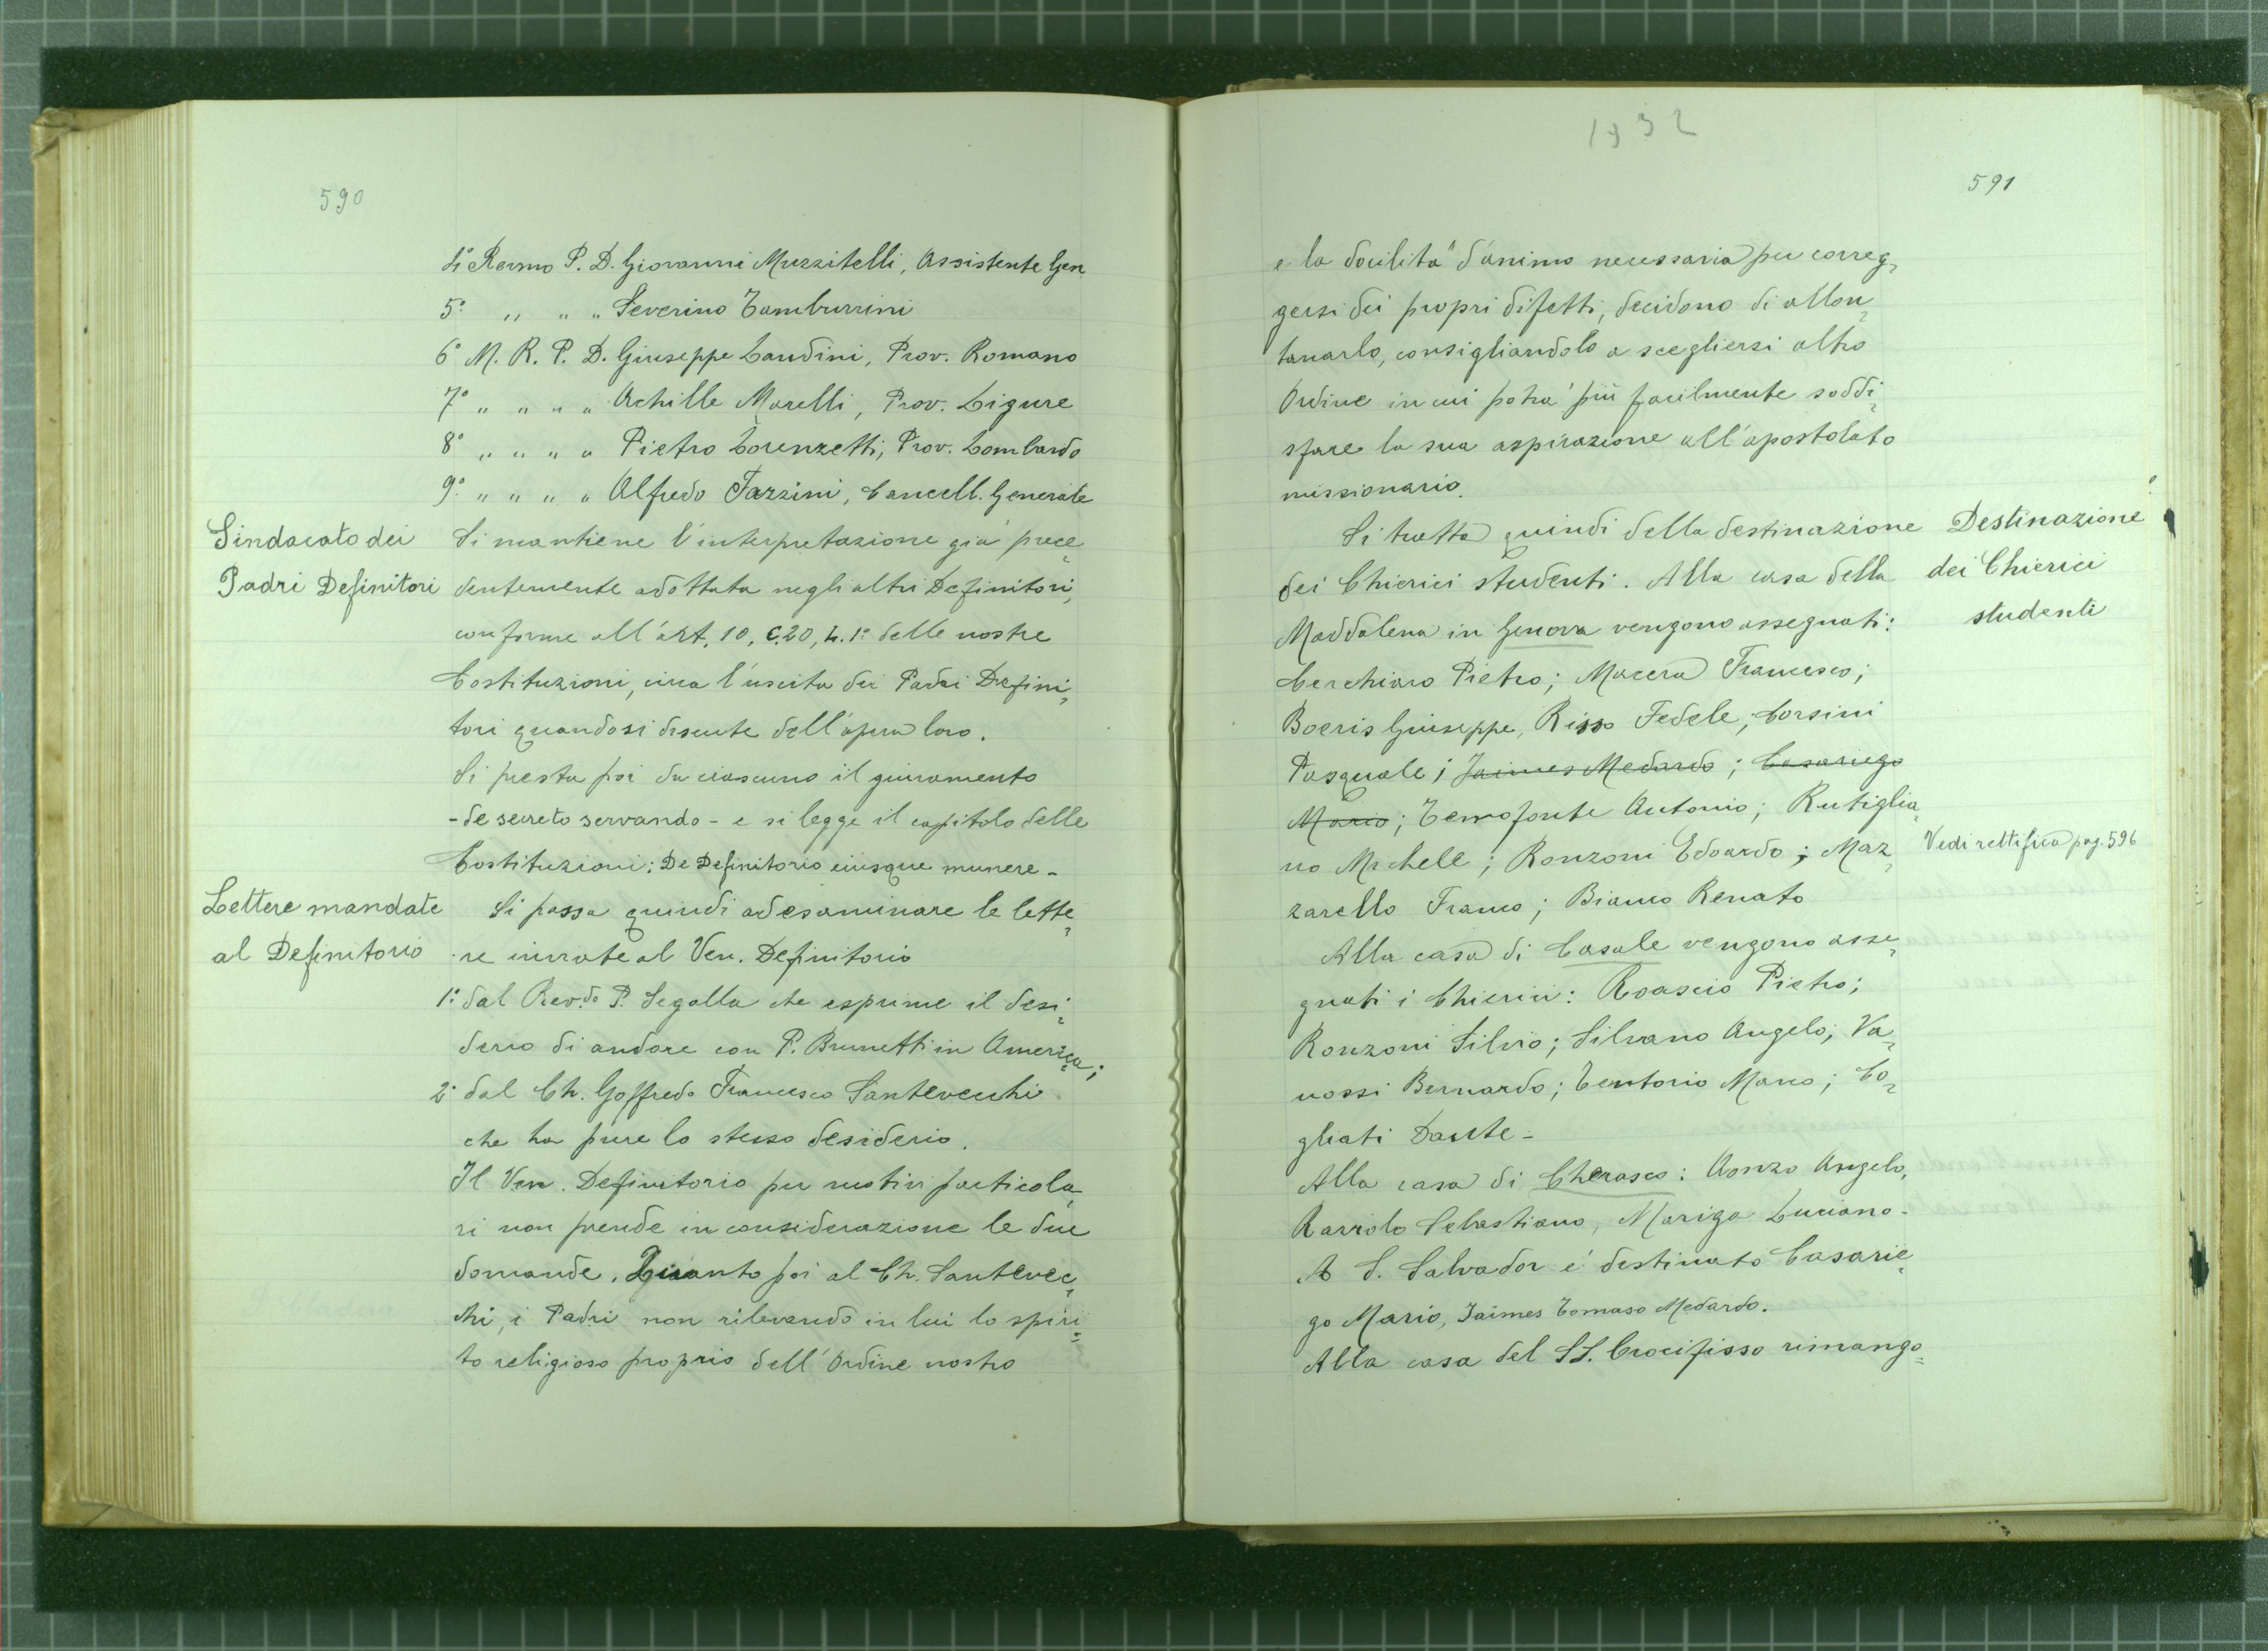 590
4º Revmo P. D. Giovanni Muzzitelli, Assistente Gen.
5º " " " Severino Tamburrini
6º M. R. P. D. Giuseppe Landini, Prov. Romano
7º " " " " Achille Marelli, Prov. Ligure
8º " " " " Pietro Lorenzetti, Prov. Lombardo
9º " " " " Alfredo Fazzini, Cancell. Generale
Sindacato dei
Padri Definitori
Si mantiene l'interpretazione già prece=
dentemente adottata negli altri Definitori,
conforme all'art. 10, C.20, L. 1º delle nostre
Costituzioni, circa l'uscita dei Padri Defini=
tori quando si discute dell'opera loro.
Si presta poi da ciascuno il giuramento
- de secreto servando - e si legge il capitolo delle
Costituzioni: De Definitorio eiusque munere -
Lettere mandate
al Definitorio
Si passa quindi ad esaminare le lette=
re inviate al Ven. Definitorio
1º dal Rev.do P. Segalla che esprime il desi=
derio di andare con P. Brunetti in America;
2º dal Ch. Goffredo Francesco Santevecchi
che ha pure lo stesso desiderio.
Il Ven. Definitorio per motivi particola=
ri non prende in considerazione le due
domande. Quanto poi al Ch. Santevec=
chi, i Padri non rilevando in lui lo spiri=
to religioso proprio dell'Ordine nostro
1932
591
e la docilità d'animo necessaria per correg=
gersi dei propri difetti, decidono di allon=
tanarlo, consigliandolo a scegliersi altro
Ordine in cui potrà più facilmente soddi=
sfare la sua aspirazione all'apostolato
missionario.
Destinazione
dei Chierici
studenti
Si tratta quindi della destinazione
dei Chierici studenti. Alla casa della
Maddalena in Genova vengono assegnati:
Cerchiaro Pietro; Macera Francesco;
Boeris Giuseppe, Risso Fedele; Corsini
Pasquale; Jaimes Medardo; Casariego
Mario; Temofonte Antonio; Rutiglia=
no Michele; Ronzoni Edoardo; Maz=
zarello Franco; Bianco Renato
Vedi rettifica pag. 596
Alla casa di Casale vengono asse=
gnati i Chierici: Roascio Pietro;
Ronzoni Silvio; Silvano Angelo; Va=
nossi Bernardo; Tentorio Marco; Co=
gliati Dante -
Alla casa di Cherasco: Aonzo Angelo,
Raviolo Sebastiano, Mariga Luciano -
A S. Salvador è destinato Casarie=
go Mario, Jaimes Tomaso Medardo.
Alla casa del SS. Crocifisso rimango=